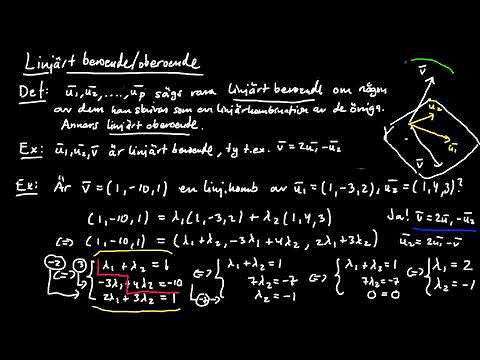 Linjärt beroende/oberoende
Def: ū₁, ū₂, ..., ūp sägs vara linjärt beroende om någon
av dem kan skrivas som en linjärkombination av de övriga.
Annars linjärt oberoende.
Ex: ū₁, ū₂, v̄ är linjärt beroende, ty t.ex. v̄ = 2ū₁ - ū₂
v̄
ū₂
ū₁
Ex: Är v̄ = (1, -10, 1) en linj. komb av ū₁ = (1, -3, 2), ū₂ = (1, 4, 3)?
(1, -10, 1) = λ₁(1, -3, 2) + λ₂(1, 4, 3)
Ja! v̄ = 2ū₁ - ū₂
⇔ (1, -10, 1) = (λ₁+λ₂, -3λ₁+4λ₂, 2λ₁+3λ₂)
ū₂ = 2ū₁ - v̄
-2 ⇔ 3 { λ₁ + λ₂ = 1 ⇔ { λ₁ + λ₂ = 1 ⇔ { λ₁ + λ₂ = 1 ⇔ { λ₁ = 2
-3λ₁ + 4λ₂ = -10 7λ₂ = -7 7λ₂ = -7 λ₂ = -1
2λ₁ + 3λ₂ = 1 λ₂ = -1 0 = 0